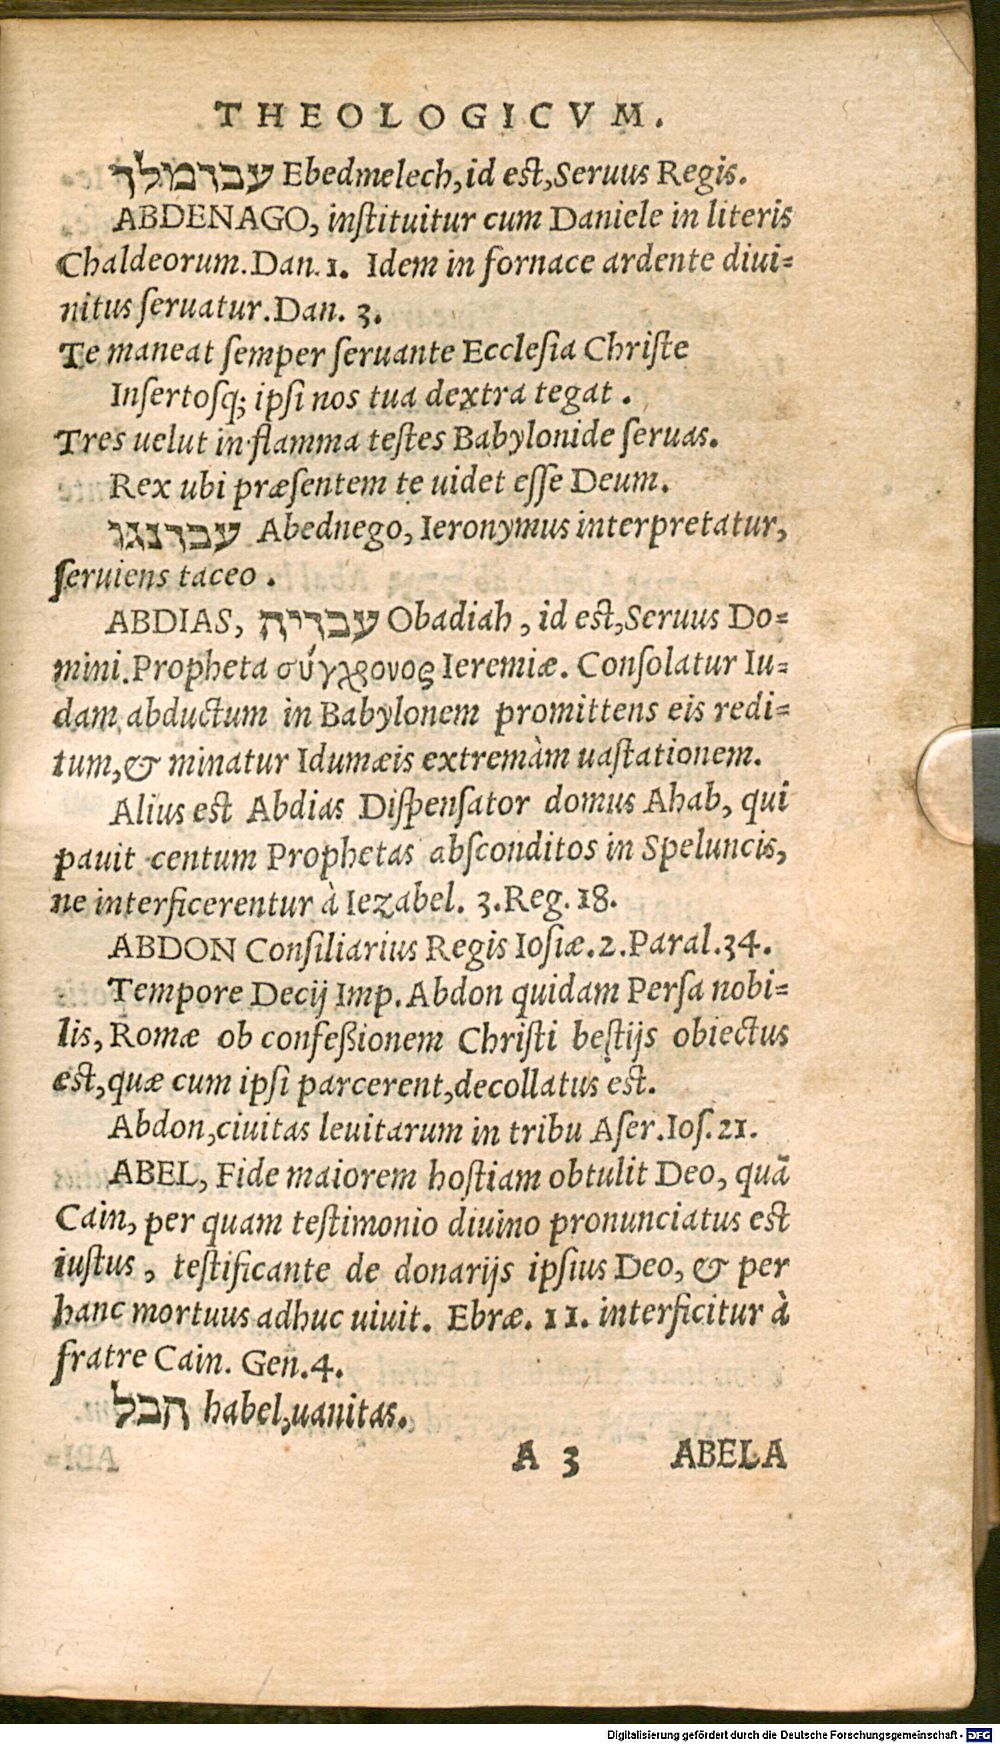 THEOLOGICVM.
עבדמלך Ebedmelech, id est, Seruus Regis.
ABDENAGO, inſtituitur cum Daniele in literis
Chaldeorum. Dan. 1. Idem in fornace ardente diui-
nitus ſeruatur. Dan. 3.
Te maneat ſemper ſeruante Eccleſia Chriſte
Inſertosq; ipſi nos tua dextra tegat.
Tres uelut in flamma teſtes Babylonide ſeruas.
Rex ubi præſentem te uidet eſſe Deum.
עבדנגו Abednego, Ieronymus interpretatur,
ſeruiens taceo.
ABDIAS, עבדיה Obadiah, id est, Seruus Do-
mini. Propheta σύγχρονος Ieremiæ. Conſolatur Iu-
dam abductum in Babylonem promittens eis redi-
tum, & minatur Idumæis extremàm uaſtationem.
Alius est Abdias Diſpenſator domus Ahab, qui
pauit centum Prophetas abſconditos in Speluncis,
ne interficerentur à Iezabel. 3. Reg. 18.
ABDON Conſiliarius Regis Ioſiæ. 2. Paral. 34.
Tempore Decij Imp. Abdon quidam Perſa nobi-
lis, Romæ ob confeßionem Chriſti beſtijs obiectus
est, quæ cum ipſi parcerent, decollatus est.
Abdon, ciuitas leuitarum in tribu Aſer. Ioſ. 21.
ABEL, Fide maiorem hoſtiam obtulit Deo, quã
Cain, per quam teſtimonio diuino pronunciatus est
iuſtus, teſtificante de donarijs ipſius Deo, & per
hanc mortuus adhuc uiuit. Ebræ. 11. interficitur à
fratre Cain. Gen. 4.
הבל habel, uanitas.
A 3 ABELA
Digitalisierung gefördert durch die Deutsche Forschungsgemeinschaft - DFG